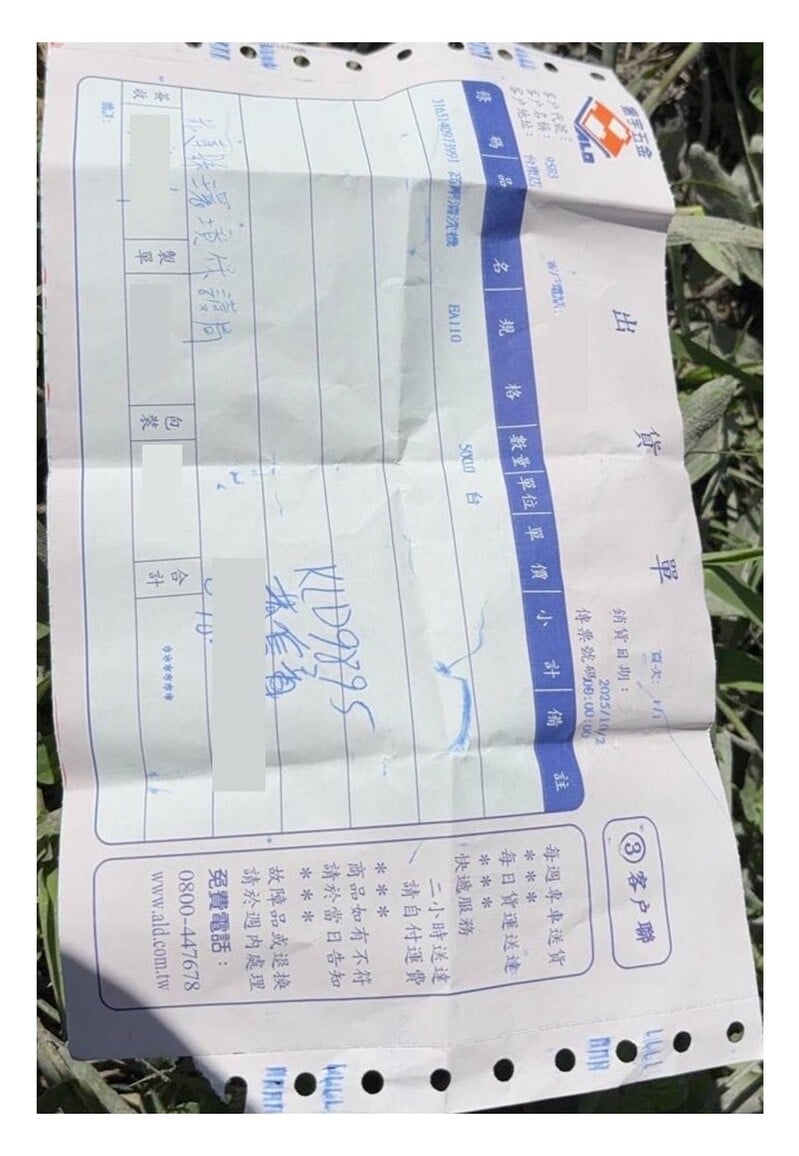 五金
ALD
出貨單
客戶代號： 9583
客戶名稱： 付款店
客戶地址：
客戶電話：
頁次： 1/1
銷貨日期： 2025/10/2
傳票號碼 00:00:00
③客戶聯
條碼 品名規格 數量 單位 單價 小計 備註
3165140973991 高壓清洗機 EA110 500.0 台
KLD9895
環境保護局
簽收 製單 包裝 合計 ********
備註：
每週專車送貨
＊＊＊
每日貨運送達
＊＊＊
快遞服務
二小時送達
請自付運費
＊＊＊
商品如有不符
請於當日告知
＊＊＊
故障品或退換
請於週內處理
免費電話：
0800-447678
www.ald.com.tw